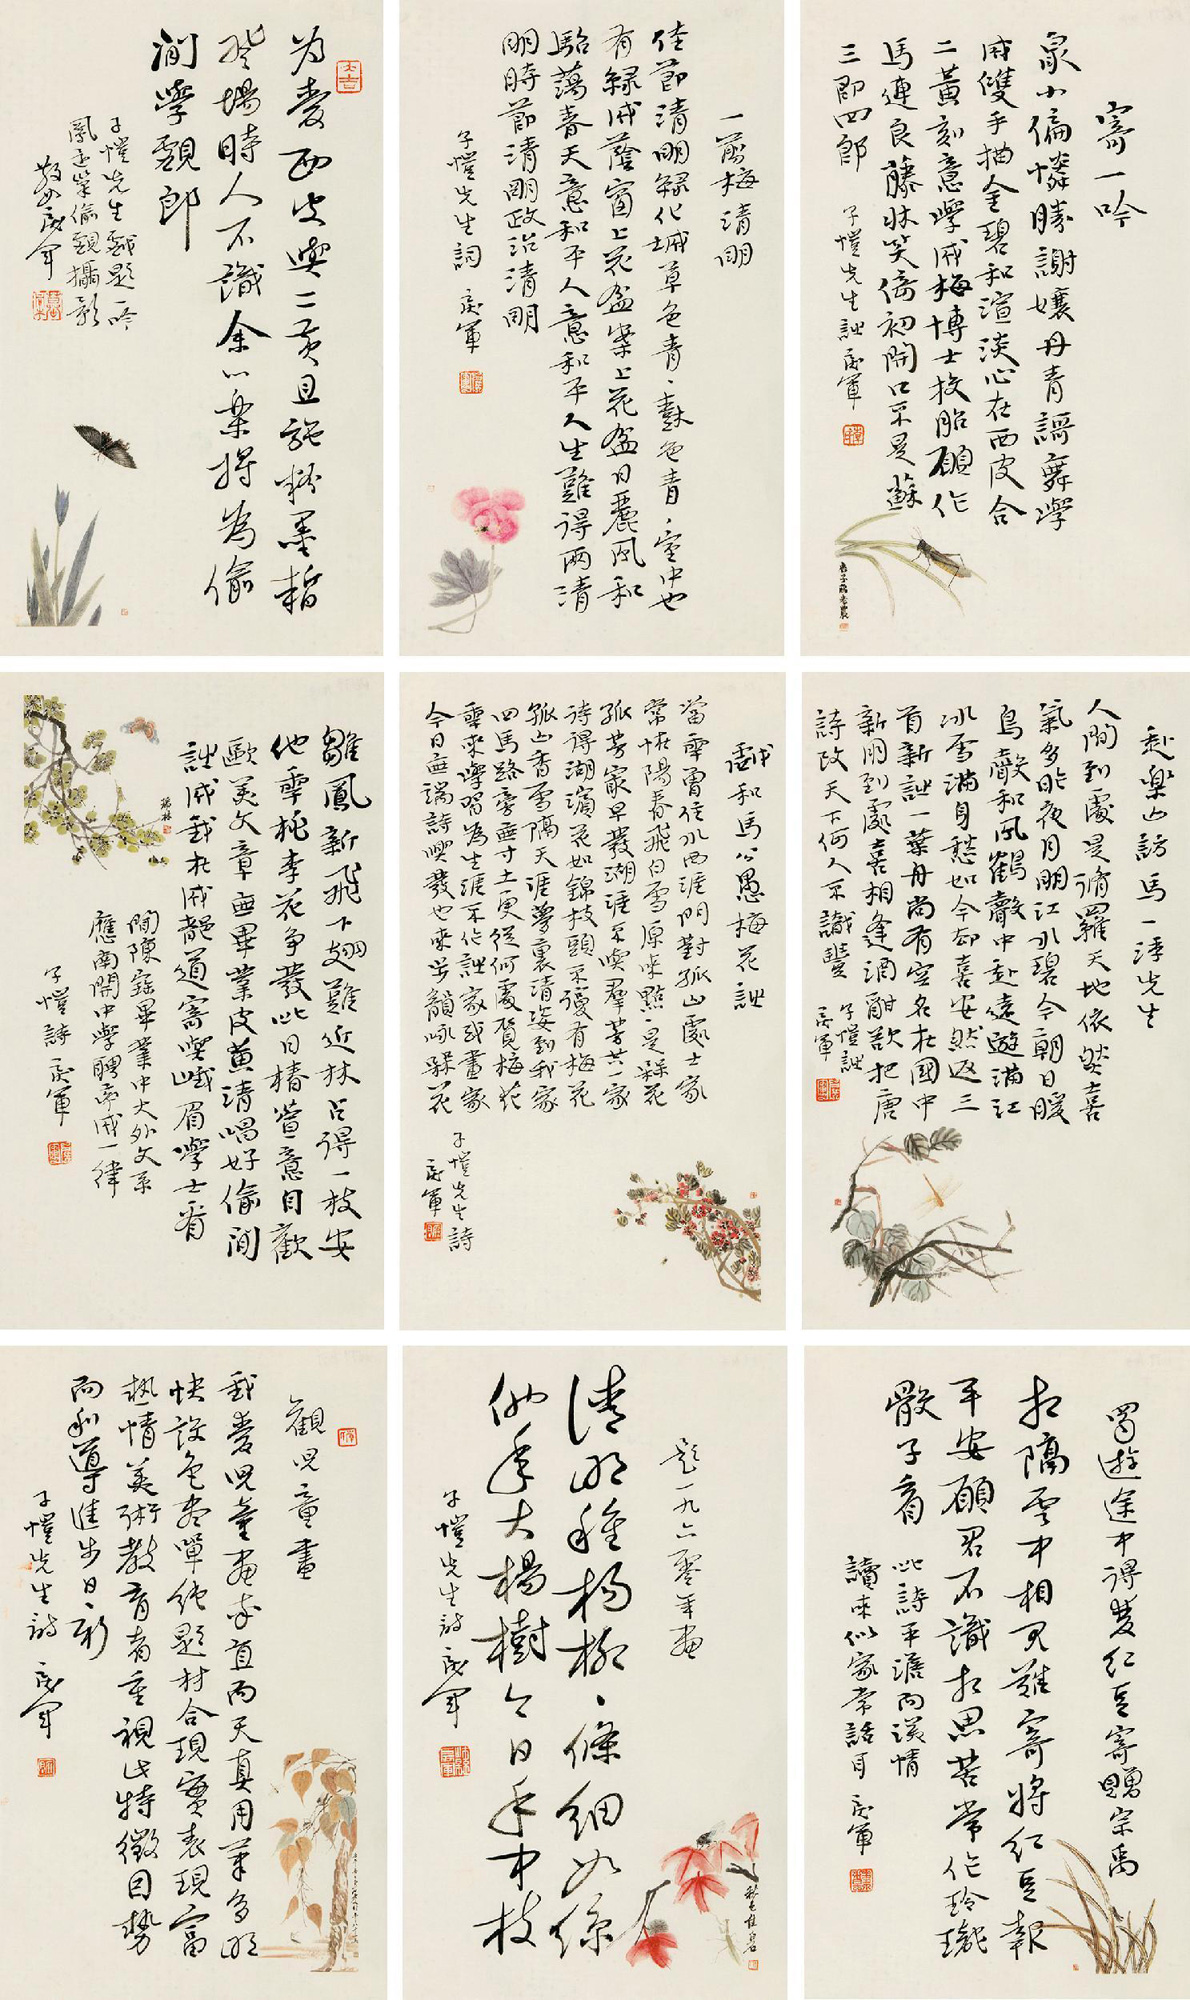 寄一吟
最小偏憐勝謝孃丹青謌舞學
成雙手描金碧和渲淡心在西皮合
二黃刻意學成梅博士投胎願作
馬連良藤牀笑倚初開口不是蘇
三即四郎
子愷先生詠
一剪梅清明
佳節清明綠化城草色青、樹色青、室中也
有綠成蔭窗上花盆案上花盆日麗風和
駘蕩春天意和平人意和平人生難得兩清
明時節清明政治清明
子愷先生詞
为愛西皮與二黃且施粉墨暫
登場時人不識余心樂將為偷
閒學郎
子愷先生戲題一吟
鳳還巢偷攝影
赴樂山訪馬一浮先生
人間到處是脩羅天地依然喜
氣多昨夜月明江水碧今朝日暖
鳥聲和風鶴聲中赴遠遊滿江
冰雪滿身愁如今却喜安然返三
首新詠一葉舟尚有空名在國中
新朋到處喜相逢酒酣欲把唐
詩改天下何人不識豐
子愷詠
戲和馬公愚梅花詠
當年曾住水西涯門對孤山處士家
常怪陽春飛白雪原來點、是槑花
孤芳最早發湖涯不與羣芳共一家
待得湖濱花如錦枝頭不復有梅花
孤山香雪隔天涯夢裏清姿到我家
四馬路旁無寸土更從何處賀梅花
年來學習為生涯不作詠家或畫家
今日無端詩興發也來步韻咏槑花
子愷先生詩
雛鳳新飛下翅難近林占得一枝安
他年桃李花争發此日椿萱意自歡
歐美文章無畢業皮黄清唱好偷閒
詠成我在成都道寄與峨眉學士看
聞陳寶畢業中大外文系
應南開中學聘喜成一律
子愷詩
蜀遊途中得雙紅豆寄贈宗禹
相隔雲中相見難寄將紅豆報
平安願君不識相思苦常作玲瓏
骰子看
此詩平澹而深情
讀來似家常話耳
題一九六零年畫
清明種楊柳、條細如絲
他年大楊樹今日手中枝
子愷先生詩
觀兒童畫
我愛兒童畫率直而天真用筆多明
快設色盡單純題材合現實表現富
熱情美術教育者重視此特徵因勢
而利導進步日日新
子愷先生詩